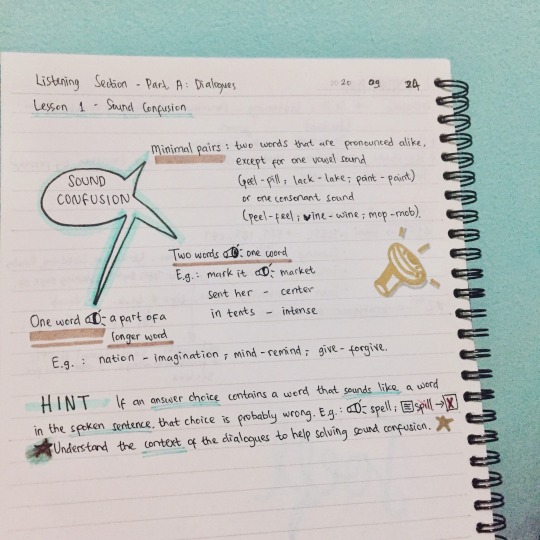 Listening Section - Part A: Dialogues
20 09 24
Lesson 1 - Sound Confusion
Minimal pairs : two words that are pronounced alike,
except for one vowel sound
(peel - pill ; lack - lake ; point - paint)
or one consonant sound
(peel - feel ; vine - wine ; mop - mob).
SOUND
CONFUSION
Two words : one word
E.g.: mark it : market
sent her - center
in tents - intense
One word - a part of a
longer word
E.g. : nation - imagination ; mind - remind ; give - forgive.
HINT If an answer choice contains a word that sounds like a word
in the spoken sentence, that choice is probably wrong. E.g.: spell ; spill → X
Understand the context of the dialogues to help solving sound confusion.